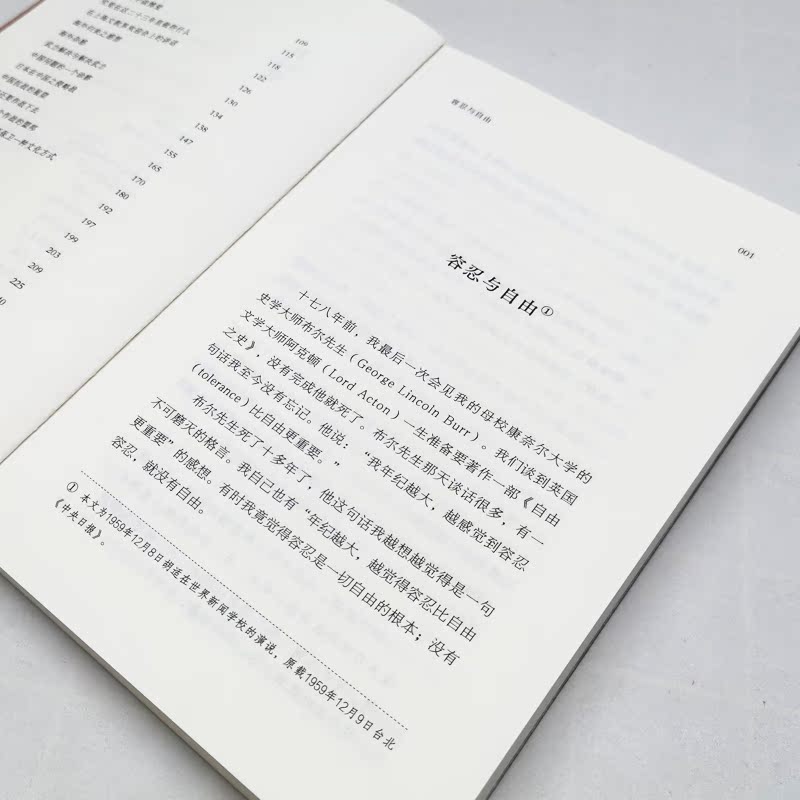 海外归来之感想
武力解决与解决武力
中国问题的一个诊断
日本在中国之侵略战
109
115
118
122
126
130
134
138
147
155
165
170
180
192
197
199
203
209
225
容忍与自由
001
容忍与自由①
十七八年前，我最后一次会见我的母校康奈尔大学的
史学大师布尔先生（George Lincoln Burr）。我们谈到英国
文学大师阿克顿（Lord Acton）一生准备要著作一部《自由
之史》，没有完成他就死了。布尔先生那天谈话很多，有一
句话我至今没有忘记。他说：“我年纪越大，越感觉到容忍
（tolerance）比自由更重要。”
布尔先生死了十多年了，他这句话我越想越觉得是一句
不可磨灭的格言。我自己也有“年纪越大，越觉得容忍比自由
更重要”的感想。有时我竟觉得容忍是一切自由的根本；没有
容忍，就没有自由。
① 本文为1959年12月8日胡适在世界新闻学校的演说，原载1959年12月9日台北
《中央日报》。